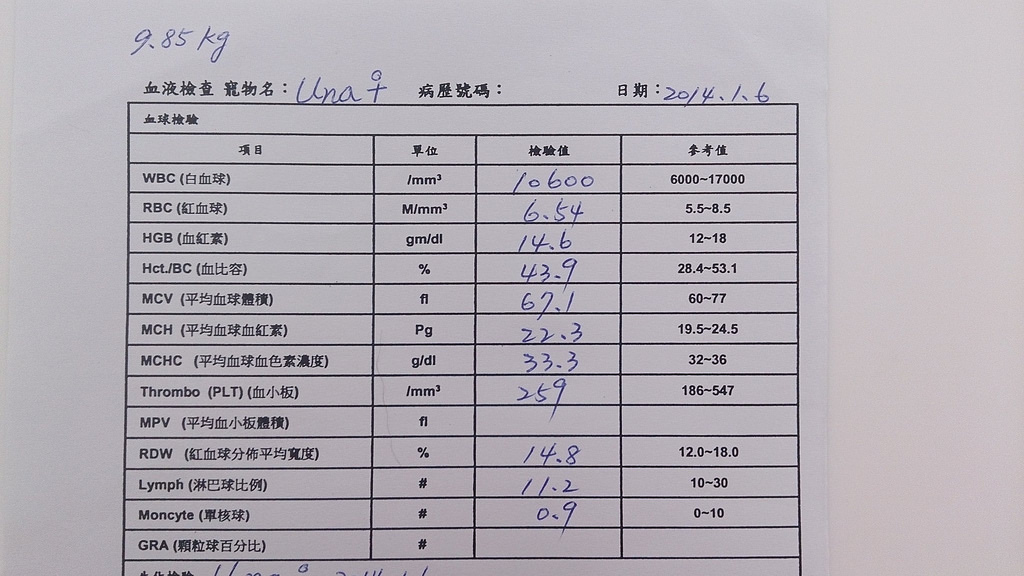 9.85 kg
血液檢查 寵物名：Una ♀ 病歷號碼： 日期：2014.1.6
血球檢驗
項目 單位 檢驗值 參考值
WBC (白血球) /mm³ 10600 6000~17000
RBC (紅血球) M/mm³ 6.54 5.5~8.5
HGB (血紅素) gm/dl 14.6 12~18
Hct./BC (血比容) % 43.9 28.4~53.1
MCV (平均血球體積) fl 67.1 60~77
MCH (平均血球血紅素) Pg 22.3 19.5~24.5
MCHC (平均血球血色素濃度) g/dl 33.3 32~36
Thrombo (PLT) (血小板) /mm³ 259 186~547
MPV (平均血小板體積) fl
RDW (紅血球分佈平均寬度) % 14.8 12.0~18.0
Lymph (淋巴球比例) # 11.2 10~30
Moncyte (單核球) # 0.9 0~10
GRA (顆粒球百分比) #